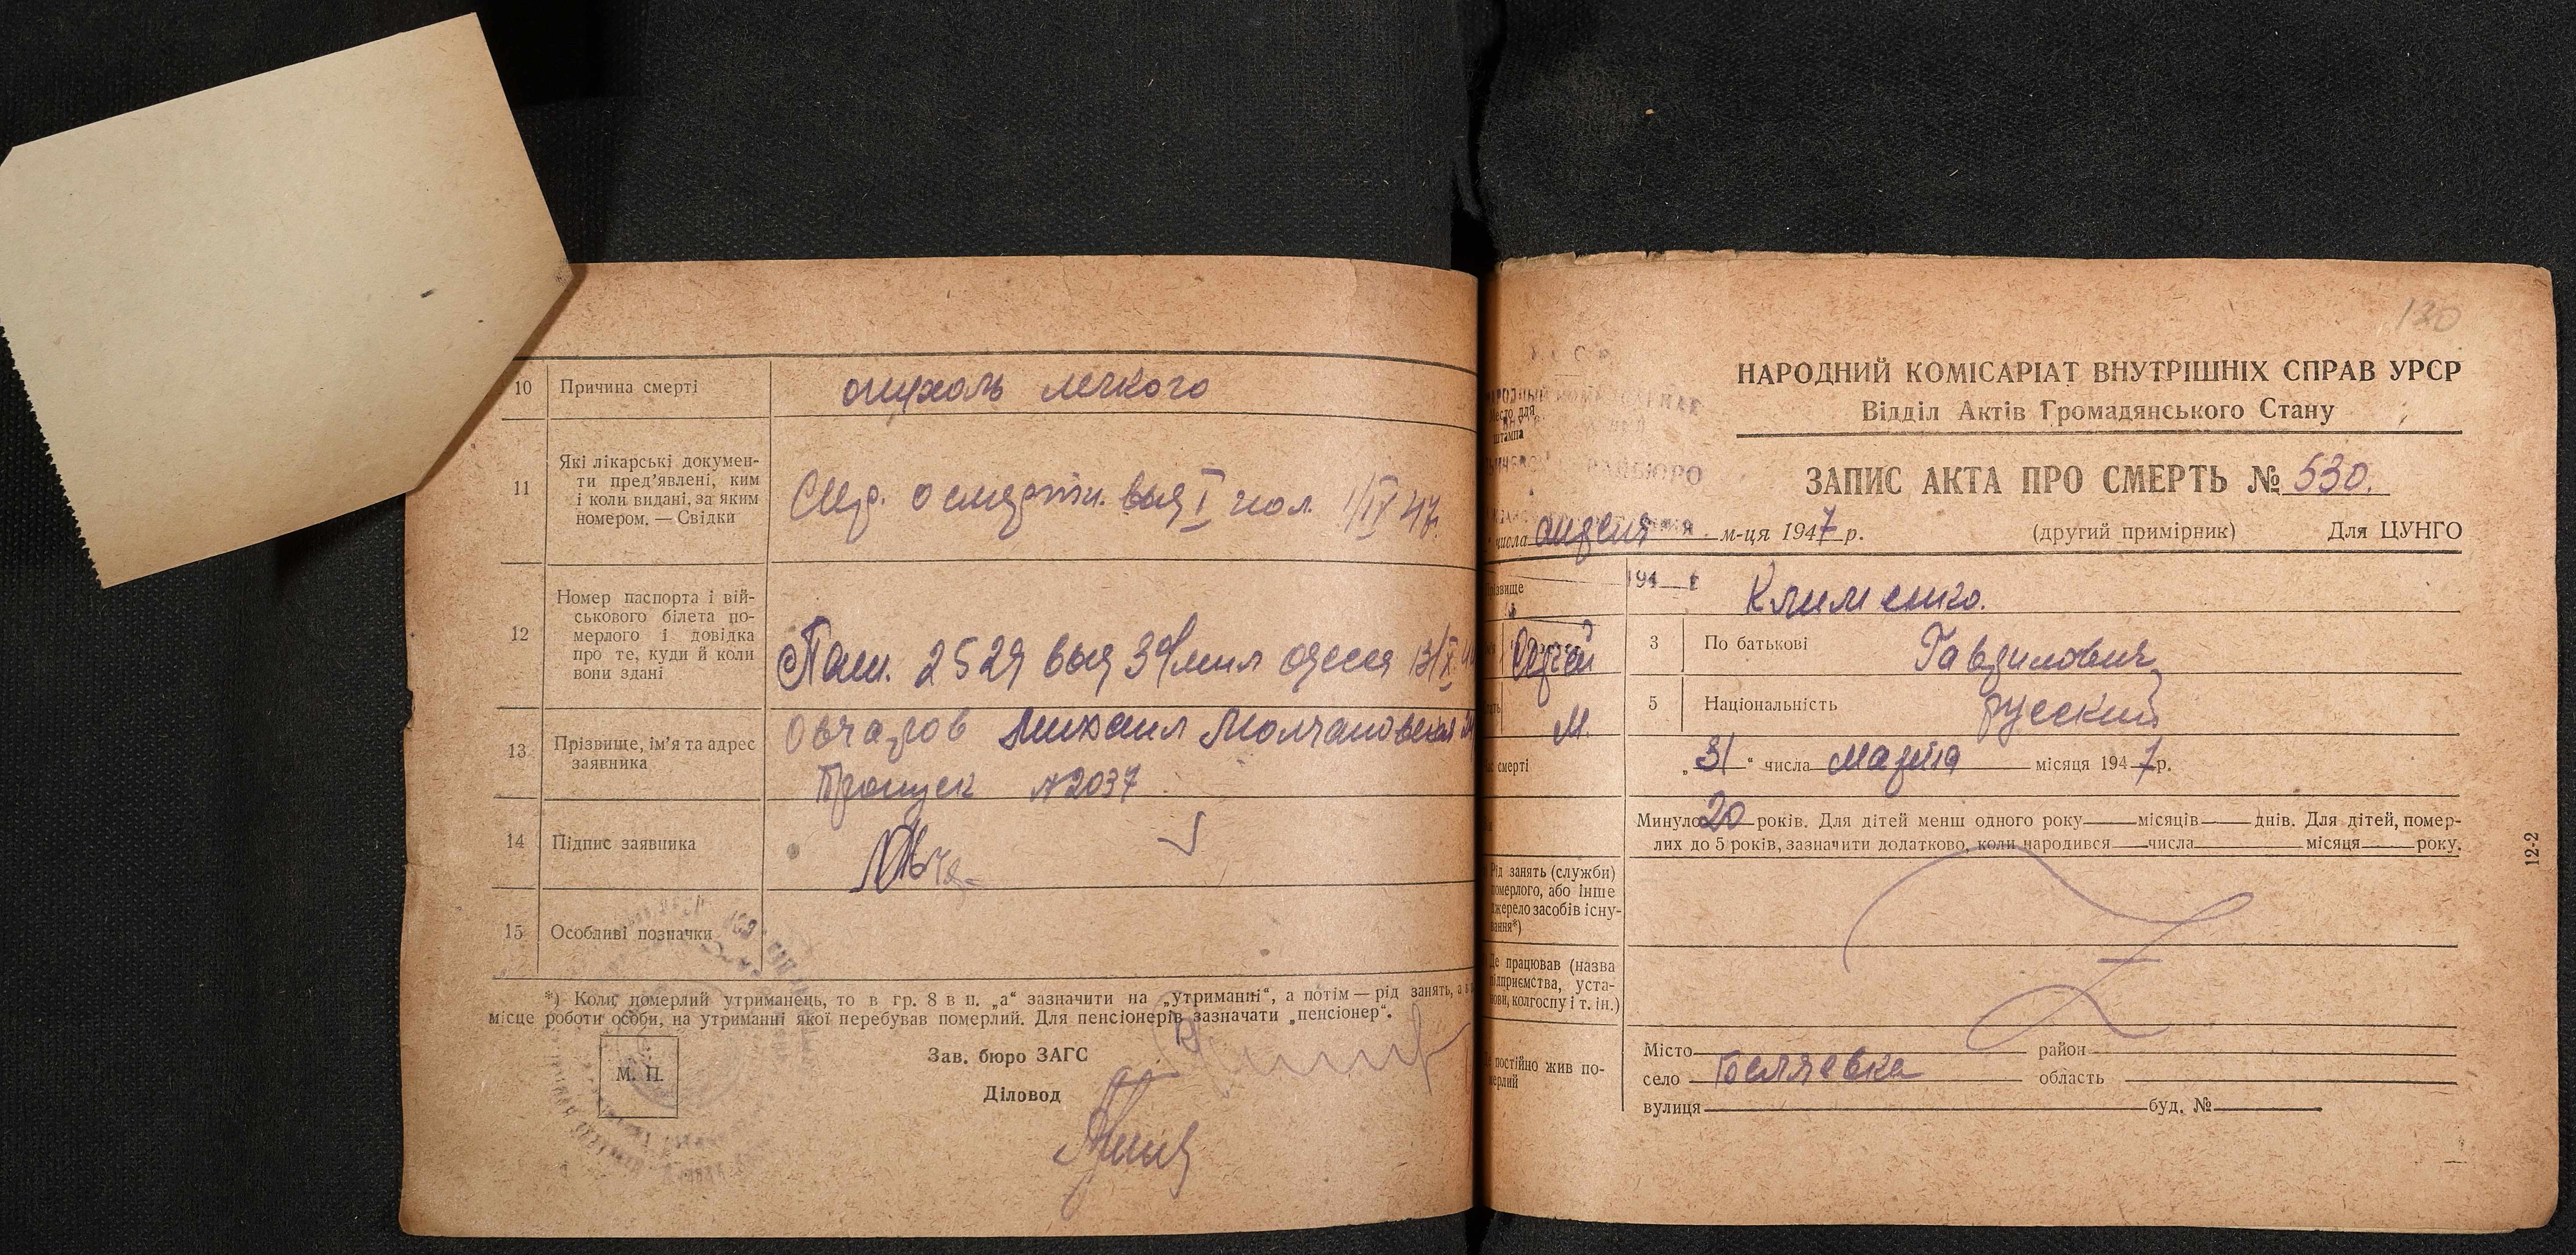 10 Причина смерті
опухоль легкого
11 Які лікарські докумен-
ти пред'явлені, ким
і коли видані, за яким
номером. — Свідки
о смерти. выд I пол. 1/IV 47.
12 Номер паспорта і вій-
ськового білета по-
мерлого і довідка
про те, куди й коли
вони здані
Пасп. 2529 выд 3 о/мил Одесса 13/X
13 Прізвище, ім'я та адрес
заявника
Овчаров Михаил Молчановская
Пропуск № 2037
14 Підпис заявника
15 Особливі позначки
*) Коли померлий утриманець, то в гр. 8 в п. „а“ зазначити на „утриманні“, а потім — рід занять, а в
місце роботи особи, на утриманні якої перебував померлий. Для пенсіонерів зазначати „пенсіонер“.
М. П.
Зав. бюро ЗАГС
Діловод
120
НАРОДНИЙ КОМІСАРІАТ ВНУТРІШНІХ СПРАВ УРСР
Відділ Актів Громадянського Стану
Место для
штампа
ЗАПИС АКТА ПРО СМЕРТЬ № 530.
числа апреля м-ця 1947 р. (другий примірник) Для ЦУНГО
194 г
Клименко.
3 По батькові Гаврилович
Сергей
5 Національність русский
М.
смерті „31“ числа марта місяця 1947 р.
Минуло 20 років. Для дітей менш одного року місяців днів. Для дітей, помер-
лих до 5 років, зазначити додатково, коли народився числа місяця року.
Рід занять (служби)
померлого, або інше
джерело засобів існу-
вання*)
Де працював (назва
підприємства, уста-
нови, колгоспу і т. ін.)
постійно жив по-
мерлий
Місто район
село Беляевка область
вулиця буд. №
12-2